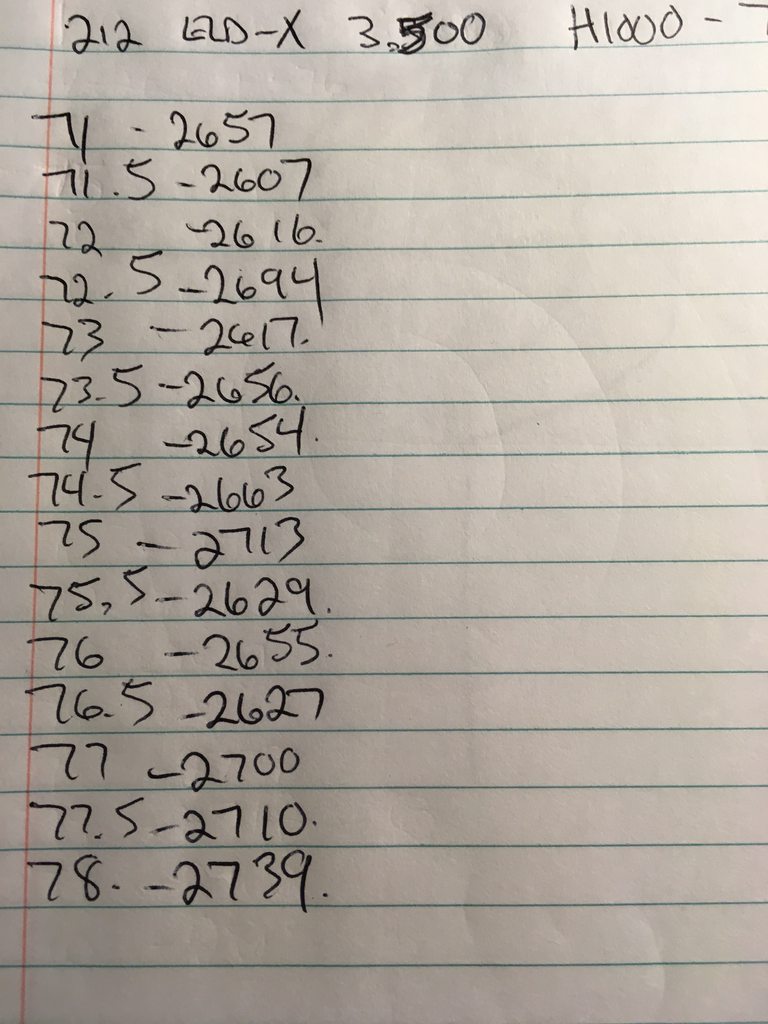 212 ELD-X 3.500 H1000 -
71 - 2657
71.5 - 2607
72 - 2616.
72.5 - 2694
73 - 2617.
73.5 - 2656.
74 - 2654.
74.5 - 2663
75 - 2713
75.5 - 2629.
76 - 2655.
76.5 - 2627
77 - 2700
77.5 - 2710.
78. - 2739.